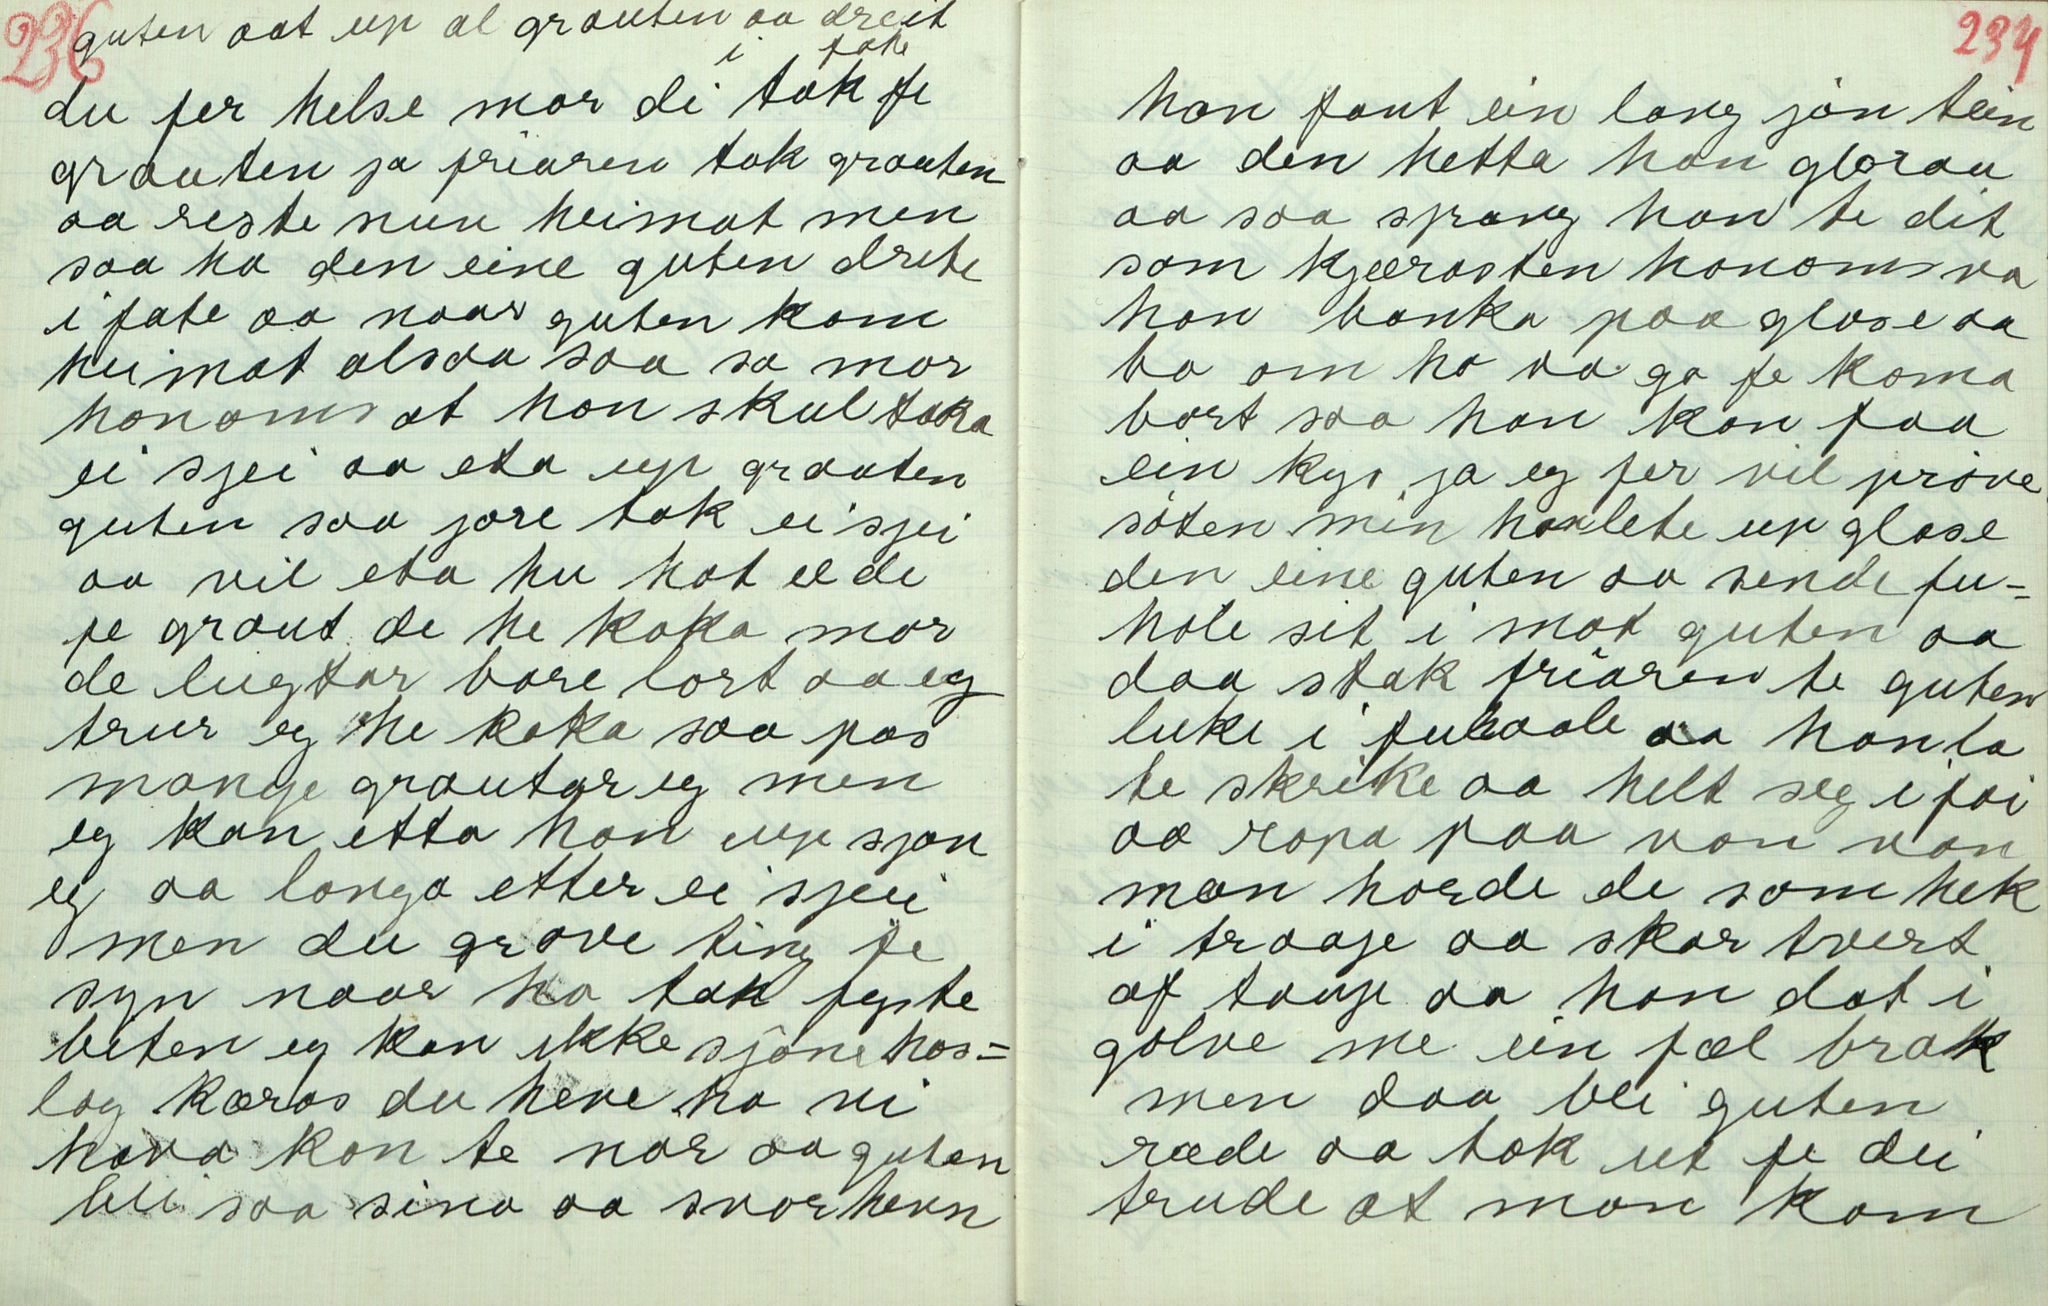 236
guten aat up al grauten aa dreit
i fate
du fer helse mor di tak fe
grauten ja friaren tok grauten
aa reste nuu heimat men
saa ha den eine guten drete
i fate aa naar guten kom
heimat alsaa saa sa mor
honoms at han skul taka
ei sjei aa eta up grauten
guten saa jore tok ei sjei
aa vil eta hu hat el de
fe graut de he koka mor
de lugtar bare lort aa eg
trur eg he koka saa pas
mange grautar eg men
eg kan etta han up sjøn
eg aa langa etter ei sjei
men du grove ting fe
syn naar ha tok fyste
beten eg kan ikke sjøne hos=
lag kæras du heve ha vi
hava kan te nør aa guten
blei saa sina aa svor hevn
237
han fant ein lang jøn tein
aa den hetta han glorau
aa saa sprang han te dit
som kjærasten honoms va
han banka paa glase aa
ba om ha va ga fe koma
bort saa han kan faa
ein kys ja eg fer vil prøve
søten min han lete up glase
den eine guten aa sende fu=
hole sit i mot guten aa
daa stak friaren te guten
luke i fuhaale aa han la
te skrike aa helt seg i fai
aa ropa paa van van
man horde de som hek
i traaje aa skar tvert
af tauje aa han dat i
golve me ein fæl brak
men daa blei guten
ræde aa tok ut fe dei
trude at man kom